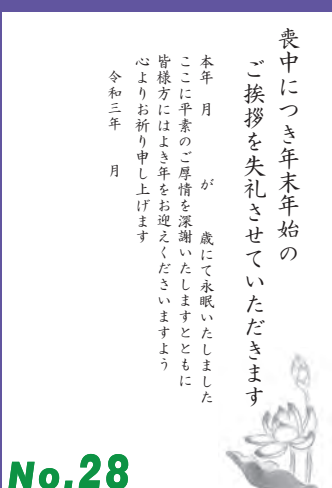 喪中につき年末年始の
ご挨拶を失礼させていただきます
本年　月　　が　　歳にて永眠いたしました
ここに平素のご厚情を深謝いたしますとともに
皆様方にはよき年をお迎えくださいますよう
心よりお祈り申し上げます
令和三年　　月
No.28